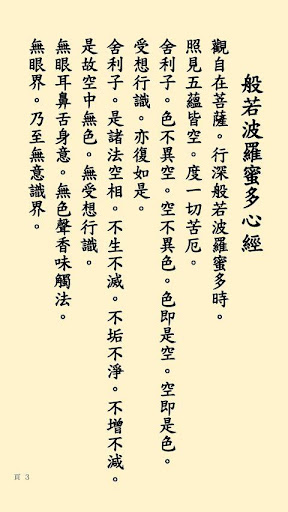 般若波羅蜜多心經
觀自在菩薩。行深般若波羅蜜多時。
照見五蘊皆空。度一切苦厄。
舍利子。色不異空。空不異色。色即是空。空即是色。
受想行識。亦復如是。
舍利子。是諸法空相。不生不滅。不垢不淨。不增不減。
是故空中無色。無受想行識。
無眼耳鼻舌身意。無色聲香味觸法。
無眼界。乃至無意識界。
頁 3